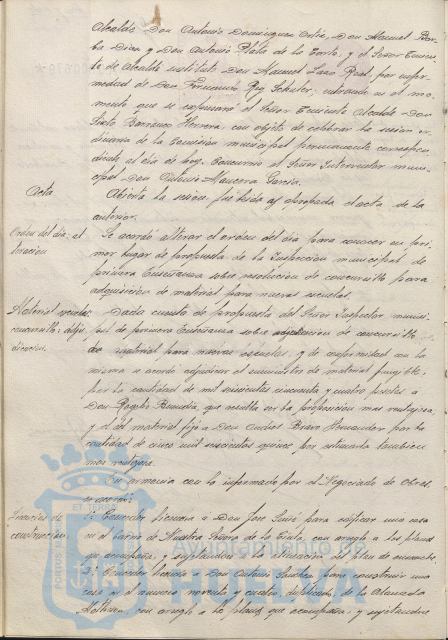 Alcalde Don Antonio Domínguez Ortiz, Don Manuel Bar-
ba Díaz y Don Antonio Plata de la Corte; y el Señor Tenien-
te de Alcalde sustituto Don Manuel Lazo Real, por enfer-
medad de Don Francisco Rey; entrando en el mo-
mento que se expresará el Señor Teniente Alcalde Don
Barranco Herrera, con objeto de celebrar la sesión or-
dinaria de la Comisión municipal permanente correspon-
diente al día de hoy. Concurrió el Señor Interventor muni-
cipal Don Antonio Mancera García.
Acta Abierta la sesión, fué leída y aprobada el acta de la
anterior.
Orden del día, al- Se acordó alterar el orden del día para conocer en pri-
teración mer lugar de propuesta de la Inspección municipal de
primera Enseñanza sobre resolución de concursillo para
adquisición de material para nuevas escuelas.
Material escuelas Dada cuenta de propuesta del Señor Inspector munici-
concursillo: adju- pal de primera Enseñanza sobre adjudicación de concursillo
dicación. de material para nuevas escuelas, y de conformidad con la
misma se acordó adjudicar el suministro de material fungible,
por la cantidad de mil seiscientas cincuenta y cuatro pesetas a
Don Rogelio Buendía, que resulta ser la proposición más ventajosa,
y el del material fijo a Don Andrés Bravo Hernández por la
cantidad de cinco mil seiscientas quince, por estimarla también
más ventajosa.
En armonía con lo informado por el Negociado de Obras
se acordó:
Licencias de 1º Conceder licencia a Don José para edificar una casa
construcción. en el barrio de Nuestra Señora de la Cinta, con arreglo a los planos
que acompaña, y sujetándose en su situación al plan de ensanche.
2º Conceder licencia a Don Antonio Sánchez para construir una
casa en el número noventa y cuatro, duplicado, de la Alameda
con arreglo a los planos que acompaña, y sujetándose
AYUNTAMIENTO DE
HUELVA
PORTUS MARIS
ET TERRAE